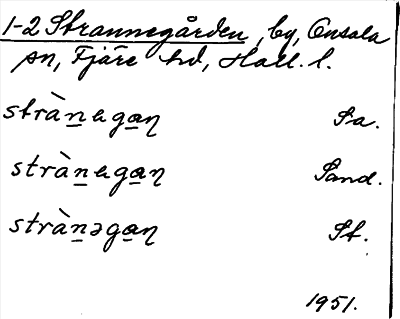 1-2 Strannegården, by, Onsala
sn, Fjäre hd, Hall. l.
strànagan̥ Fa.
strànagan̥ Sand.
strànəgan̥ St.
1951.